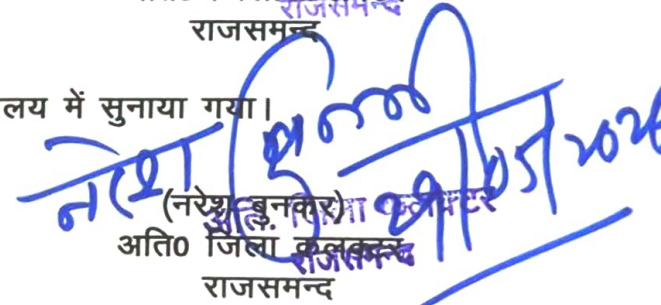 राजसमन्द
राजसमन्द
लय में सुनाया गया।
नरेश
(नरेश बुनकर)
अति. जिला कलक्टर
अति0 जिला कलक्टर
राजसमन्द
राजसमन्द